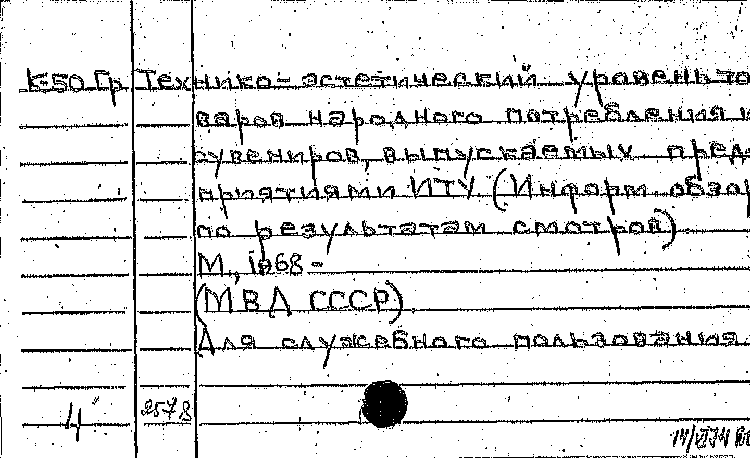 К-50 Гр Технико-эстетический уровень то
варов народного потребления и
сувениров, выпускаемых пред
приятиями ИТУ. (Информ. обзор
по результатам смотров)
М., 1968 -
(МВД СССР)
Для служебного пользования.
4 2578